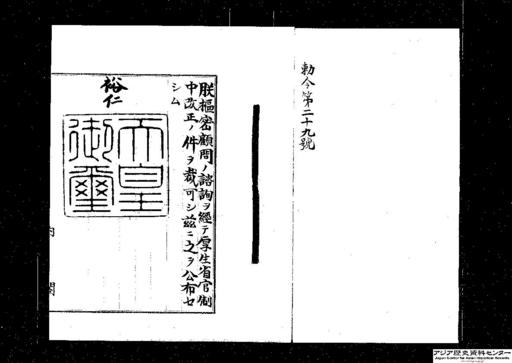 勅令第二十九號
朕樞密顧問ノ諮詢ヲ經テ厚生省官制
中改正ノ件ヲ裁可シ茲ニ之ヲ公布セ
シム
裕仁
天皇
御璽
内閣
アジア歴史資料センター
Japan Center for Asian Historical Records